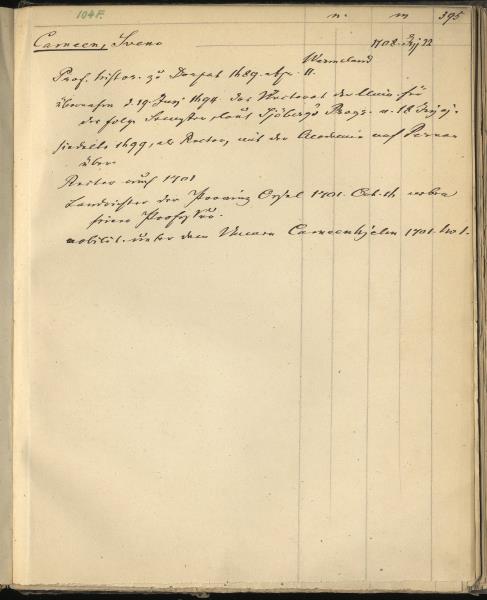 104F. n. m 395
Cameen, Sveno 1708. 22
Wermeland
Prof. histor. zu Dorpat 1689. Apr. 11.
übernahm d 29. Juni 1694. das Rectorat der Univ. für
das folg. Semester, laut Sjöbergs Progr. v. 18
siedelte 1699, als Rector, mit der Academie nach Pernau
über
Rector auch 1701
Landrichter der Provinz Oesel 1701. Oct. neben
seiner Professur.
nobilit. unter dem Namen Cameenhjelm 1701.